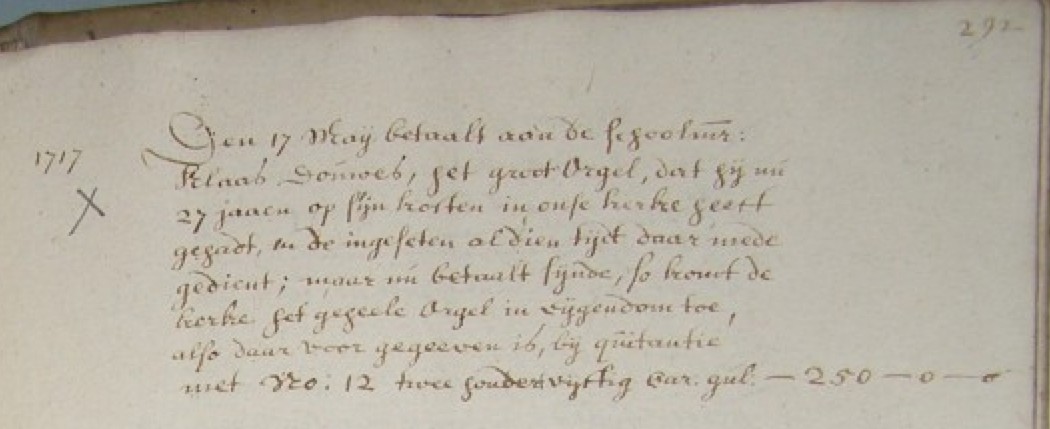 292
1717
Den 17 Maÿ betaalt aan de schoolmr:
Klaas Douwes, het groot Orgel, dat hÿ nu
X
27 jaaren op sÿn kosten in onse kerke heeft
gehadt, en de ingeseten al dien tÿdt daar mede
gedient; maar nu betaalt sÿnde, so komt de
kerke het geheele Orgel in eÿgendom toe,
also daar voor gegeeven is, bÿ quitantie
met No: 12 twee hondert vÿftig Car: gul: — 250 — 0 — 0